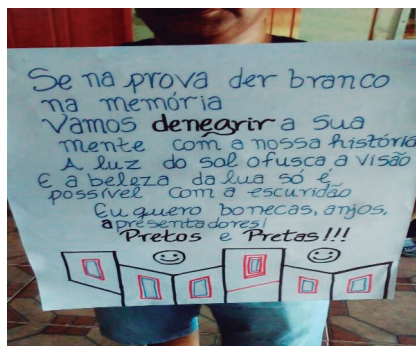 Se na prova der branco
na memória
Vamos denegrir a sua
mente com a nossa história
A luz do sol ofusca a visão
E a beleza da lua só é
possível com a escuridão
Eu quero bonecas, anjos,
apresentadores!
Pretos e Pretas!!!